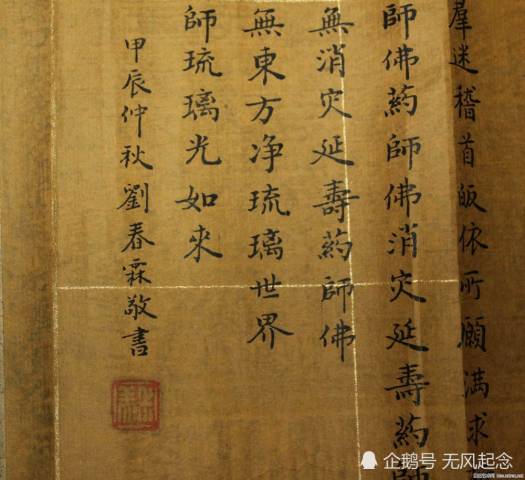 羣迷稽首皈依所願满求
師佛药師佛消灾延壽药師
無消灾延壽药師佛
無東方净琉璃世界
師琉璃光如來
甲辰仲秋劉春霖敬書
企鹅号 无风起念